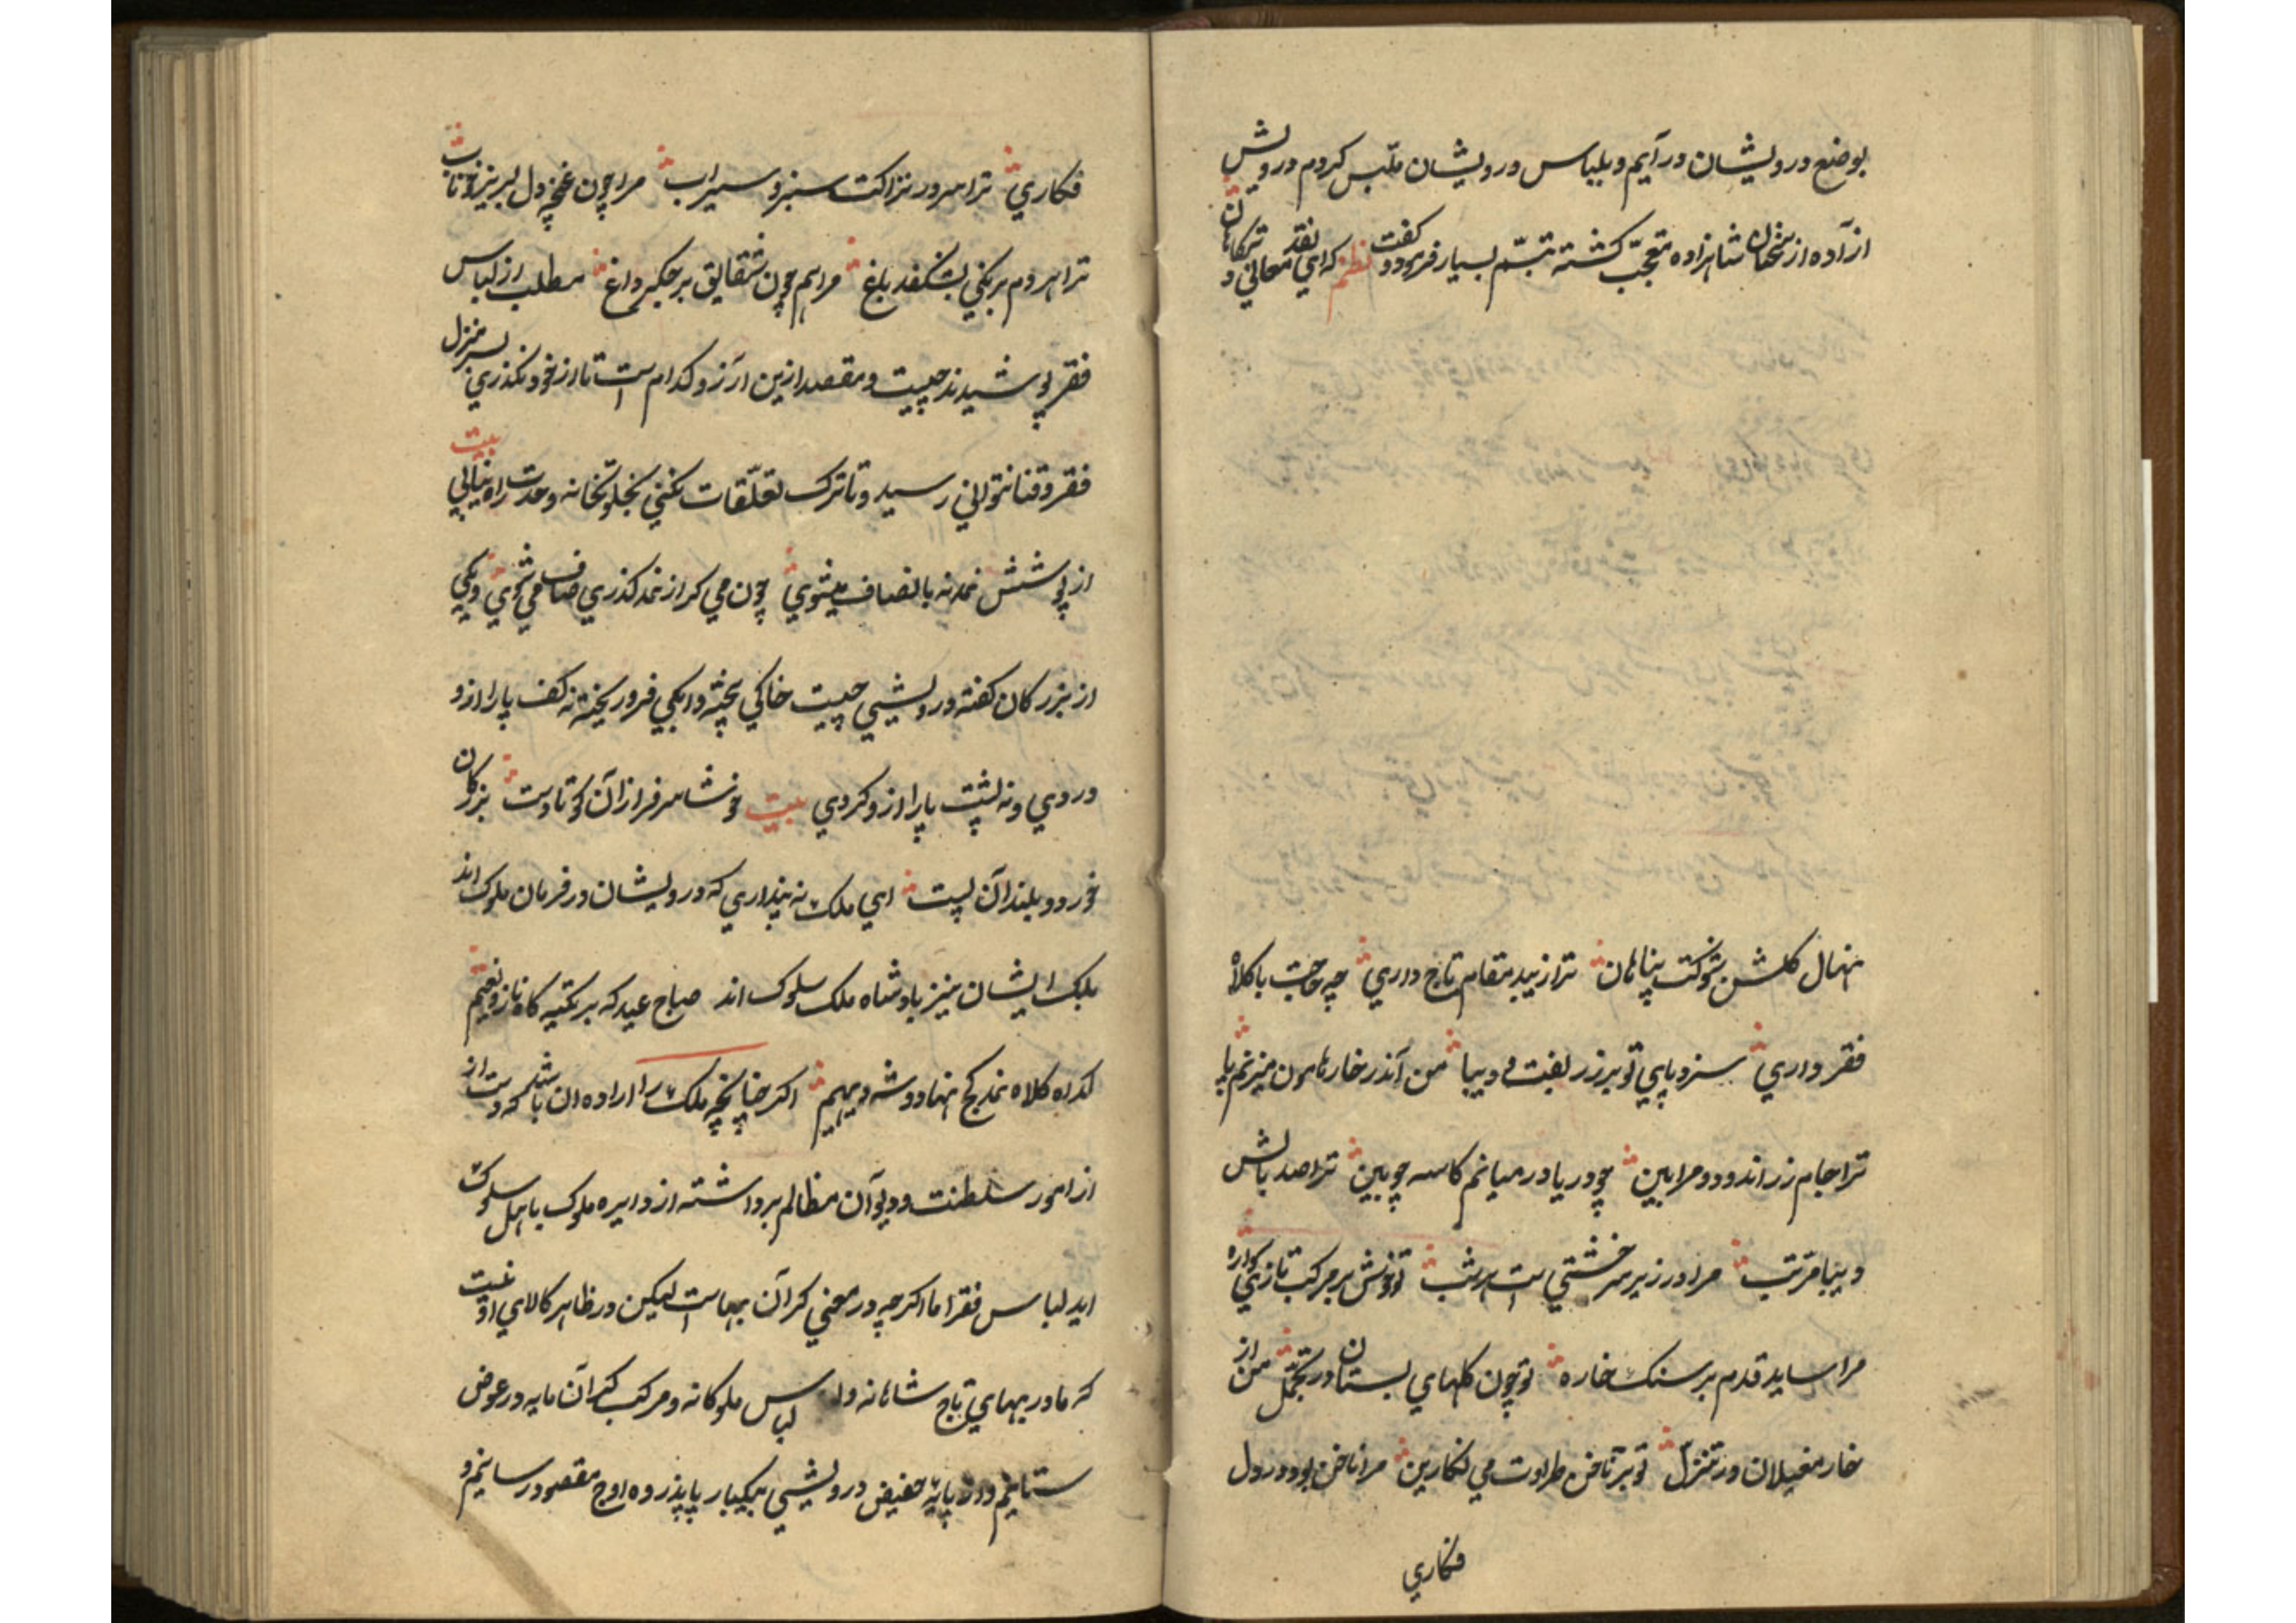 بوضع درویشان درآیم و بلباس درویشان ملبس کردم درویش
از آده از سخنان شاهزاده متعجب کشته تبسم بسیار فرمود و کفت نظم که ای نقد معانی در
نهال کلشن شوکت پناهان ترا زیبد مقام تاج داری چه حاجت با کلاه
فقر داری سزد پای تو بر زربفت و دیبا من آندر خار هامون میزنم پا
ترا جام زر اندود و مرا بین چو دریا در میانم کاسه چوبین ترا صد بالش
دیبا مرتب مرا در زیر سر خشتی است هر شب تو خوش بر مرکب تازی سواره
مرا ساید قدم بر سنک خاره تو چون کلهای بستان در تجمل من از
خار مغیلان در تنزل تو بر ناخن طراوت می نکارین مرا ناخن بود در دل
فکاری
فکاری ترا سرو در نزاکت سبز و سیراب مرا چون غنچه دل لبریز خوناب
ترا هر دم برنکی بشکفد باغ مرا هم چون شقایق بر جکر داغ مطلب از لباس
فقر پوشیدن چیست و مقصد ازین آرزو کدام است تا از خود نکذری بسر منزل
فقر و فنا نتوانی رسید و تا ترک تعلقات نکنی بخلوتخانه وحدت راه نیابی بیت
از پوشش نمد نه بانصاف میشوی چون می کر از نمد کذری صاف می شوی و یکی
از بزرکان کفته درویشی چیست خاکی بیخته و ابکی فرو ریخته نه کف پا را ازو
دردی و نه پشت پا را ازو کردی بیت خوشا سرفراز آن کوتا دست بزرکان
خورد و بلندان پست ای ملک نه پنداری که درویشان در فرمان ملوک اند
بلک ایشان نیز پادشاه ملک سلوک اند صباح عید که بر تکیه کاه ناز و نعیم
کدا کلاه نمد کج نهاد و شه دیهیم اکر چنانچه ملک را اراده ان باشد که دست از
از امور سلطنت و دیوان مظالم برداشته از دایره ملوک باهل سلوک
اید لباس فقر اما اکرچه در معنی کران بهاست لیکن در ظاهر کالای او نیست
که ما در بهای تاج شاهانه و لباس ملوکانه و مرکب کران مایه در عوض
ستانیم و از پایه حضیض درویشی بیکبار پا بذروه اوج مقصود رسانیم و